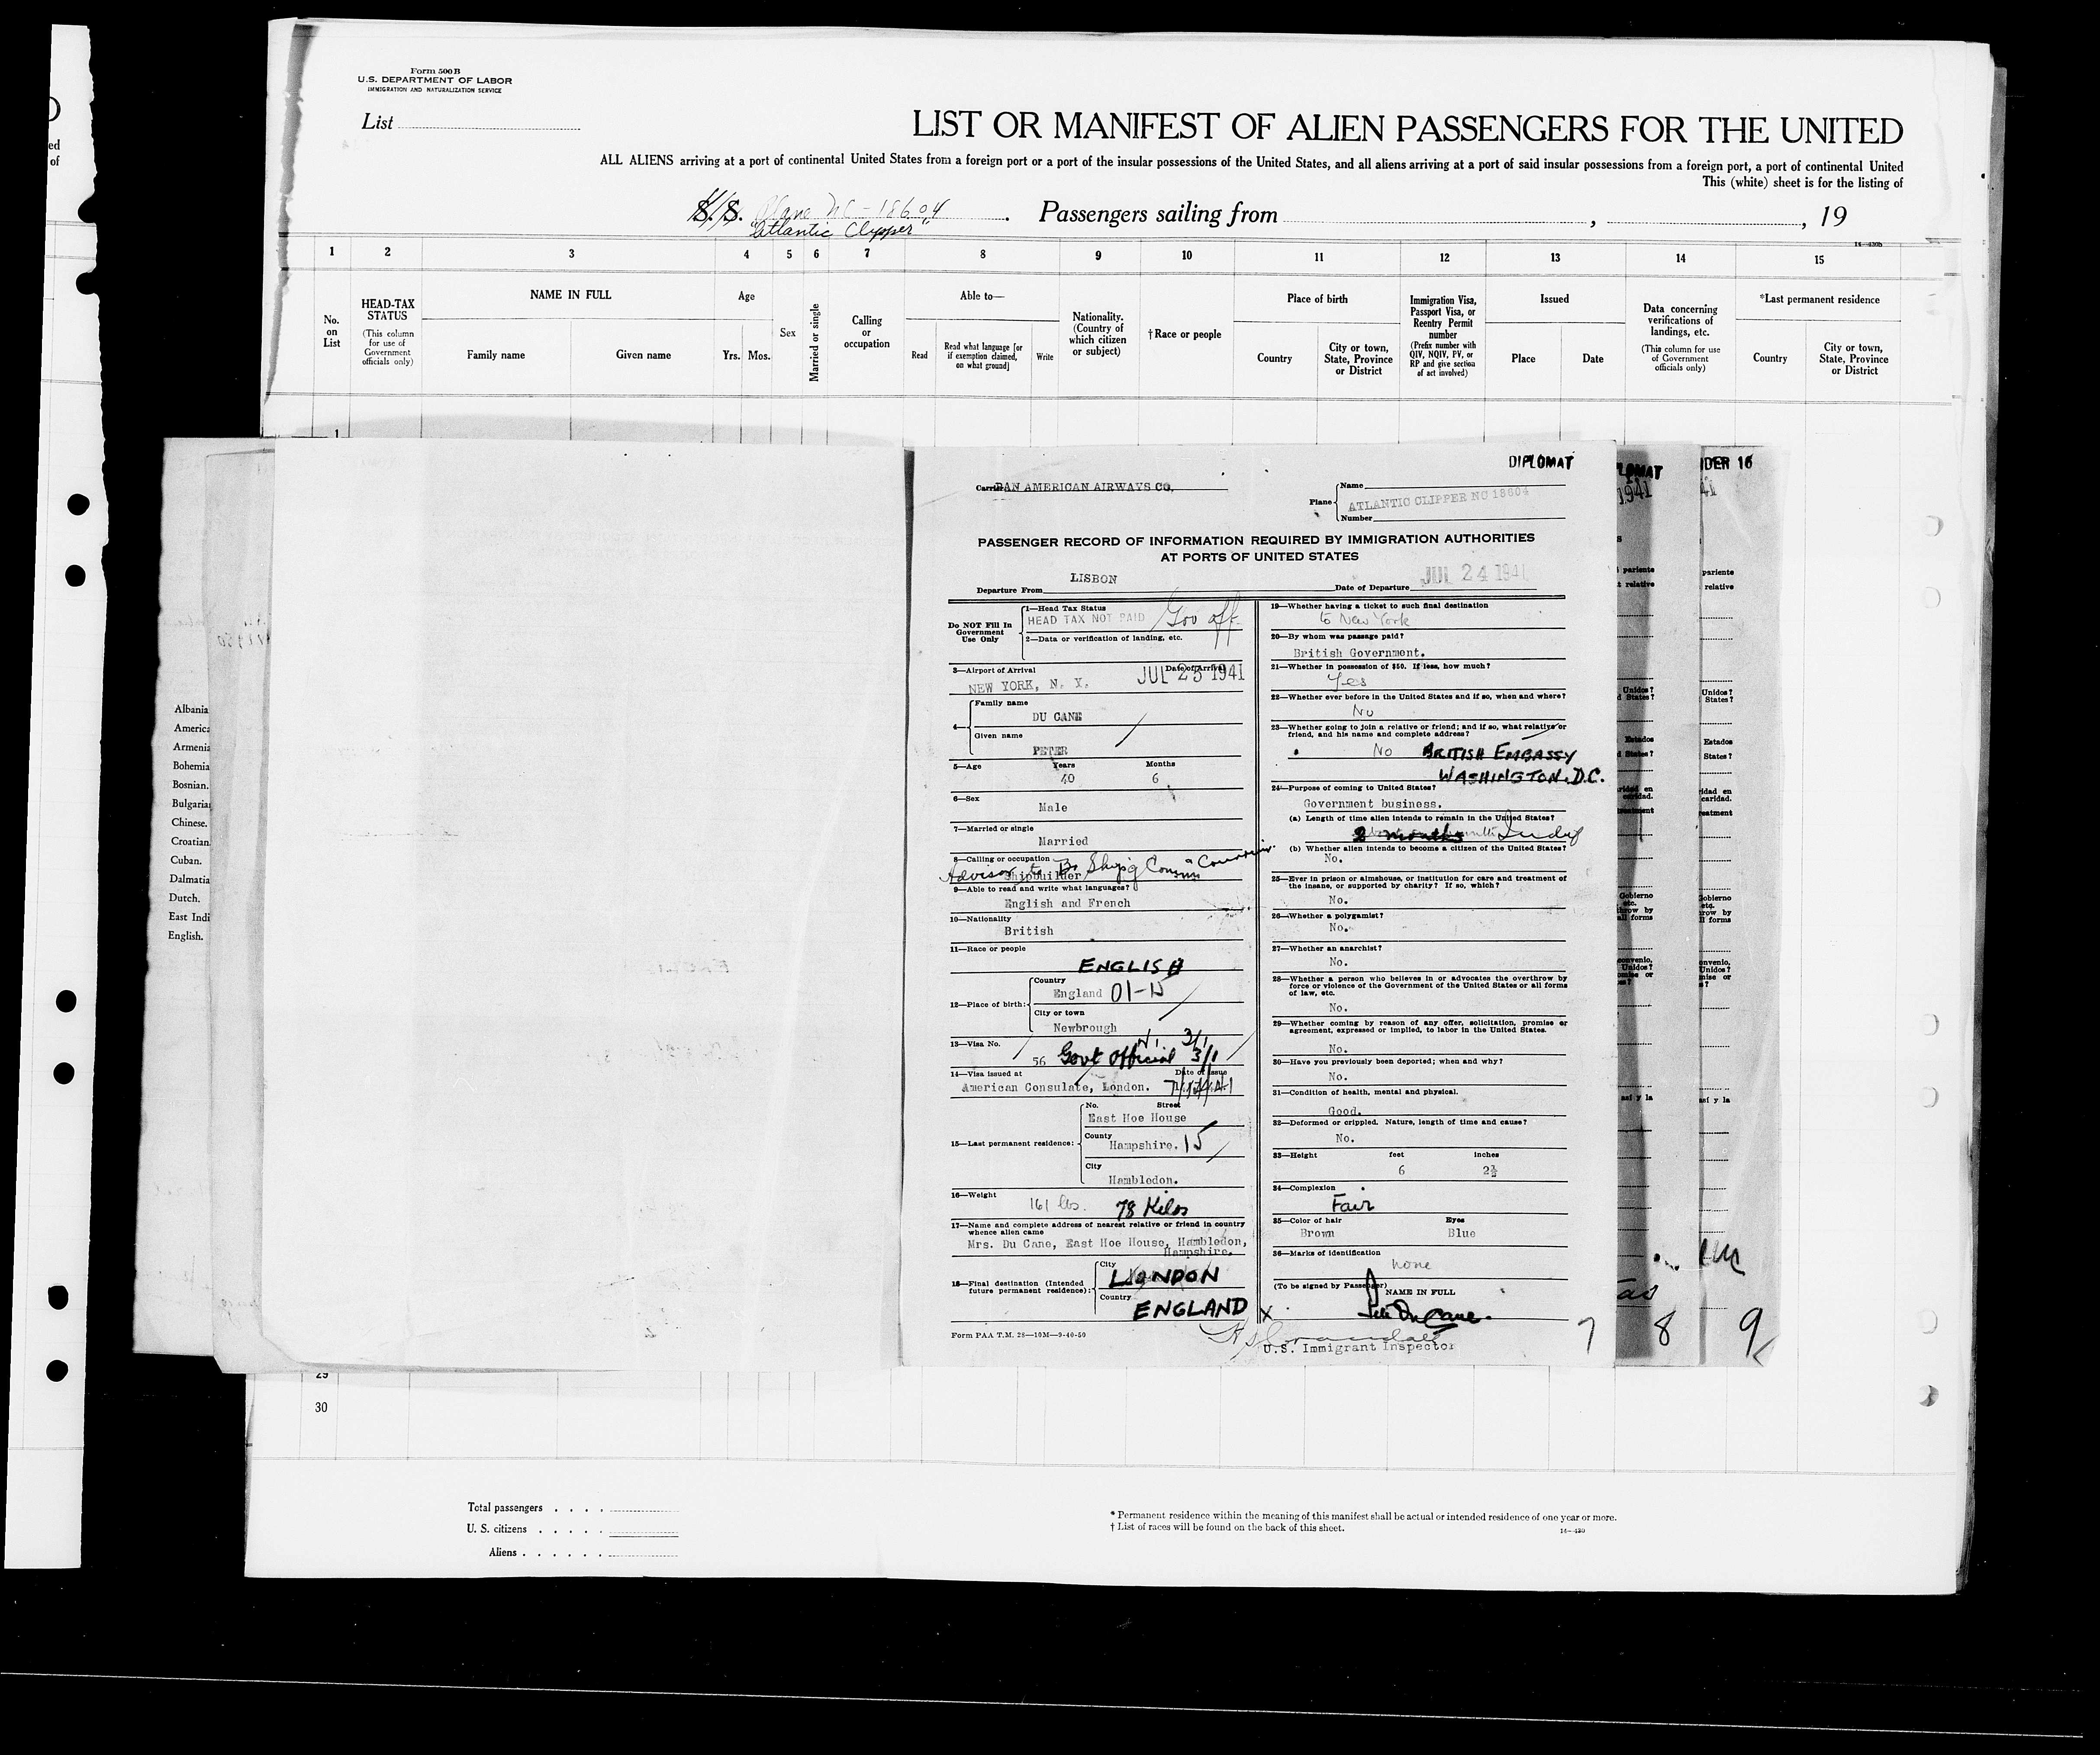 Form 500 B
U.S. DEPARTMENT OF LABOR
IMMIGRATION AND NATURALIZATION SERVICE
List
LIST OR MANIFEST OF ALIEN PASSENGERS FOR THE UNITED
ALL ALIENS arriving at a port of continental United States from a foreign port or a port of the insular possessions of the United States, and all aliens arriving at a port of said insular possessions from a foreign port, a port of continental United
This (white) sheet is for the listing of
S.S. Plane NC-18604
"Atlantic Clipper"
Passengers sailing from , , 19
1 2 3 4 5 6 7 8 9 10 11 12 13 14 15
No. on List
HEAD-TAX STATUS
(This column for use of Government officials only)
NAME IN FULL
Family name
Given name
Age
Yrs. Mos.
Sex
Married or single
Calling or occupation
Able to—
Read
Read what language [or if exemption claimed, on what ground]
Write
Nationality. (Country of which citizen or subject)
†Race or people
Place of birth
Country
City or town, State, Province or District
Immigration Visa, Passport Visa, or Reentry Permit number
(Prefix number with QIV, NQIV, PV, or RP and give section of act involved)
Issued
Place
Date
Data concerning verifications of landings, etc.
(This column for use of Government officials only)
*Last permanent residence
Country
City or town, State, Province or District
1
Albania
America
Armenia
Bohemia
Bosnian.
Bulgarian
Chinese.
Croatian
Cuban.
Dalmatia
Dutch.
East Indi
English.
DIPLOMAT
Carrier PAN AMERICAN AIRWAYS CO.
Plane
Name
ATLANTIC CLIPPER NC 18604
Number
PASSENGER RECORD OF INFORMATION REQUIRED BY IMMIGRATION AUTHORITIES
AT PORTS OF UNITED STATES
Departure From LISBON
Date of Departure JUL 24 1941
Do NOT Fill In
Government
Use Only
1—Head Tax Status
HEAD TAX NOT PAID Gov off.
2—Data or verification of landing, etc.
3—Airport of Arrival
Date of Arrival
NEW YORK, N. Y. JUL 25 1941
4—
Family name
DU CANE
Given name
PETER
5—Age Years Months
40 6
6—Sex
Male
7—Married or single
Married
8—Calling or occupation
Advisor to Br. Ship'g Comm
Shipbuilder
9—Able to read and write what languages?
English and French
10—Nationality
British
11—Race or people
ENGLISH
12—Place of birth:
Country
England 01-15
City or town
Newbrough
13—Visa No.
56 Govt Official 3/1 3/1
14—Visa issued at
Date of Issue
American Consulate, London.
15—Last permanent residence:
No. Street
East Hoe House
County
Hampshire. 15
City
Hambledon.
16—Weight
161 lbs. 78 Kilos
17—Name and complete address of nearest relative or friend in country whence alien came
Mrs. Du Cane, East Hoe House, Hambledon,
Hampshire.
18—Final destination (Intended future permanent residence):
City
LONDON
Country
ENGLAND
Form PAA T.M. 28—10M—9-40-50
19—Whether having a ticket to such final destination
to New York
20—By whom was passage paid?
British Government.
21—Whether in possession of $50. If less, how much?
Yes
22—Whether ever before in the United States and if so, when and where?
No
23—Whether going to join a relative or friend; and if so, what relative or friend, and his name and complete address?
No BRITISH EMBASSY
WASHINGTON. D.C.
24—Purpose of coming to United States?
Government business.
(a) Length of time alien intends to remain in the United States?
2 months Indef
(b) Whether alien intends to become a citizen of the United States?
No.
25—Ever in prison or almshouse, or institution for care and treatment of the insane, or supported by charity? If so, which?
No.
26—Whether a polygamist?
No.
27—Whether an anarchist?
No.
28—Whether a person who believes in or advocates the overthrow by force or violence of the Government of the United States or all forms of law, etc.
No.
29—Whether coming by reason of any offer, solicitation, promise or agreement, expressed or implied, to labor in the United States.
No.
30—Have you previously been deported; when and why?
No.
31—Condition of health, mental and physical.
Good.
32—Deformed or crippled. Nature, length of time and cause?
No.
33—Height feet inches
6 2½
34—Complexion
Fair
35—Color of hair Eyes
Brown Blue
36—Marks of identification
none
(To be signed by Passenger) NAME IN FULL
X Peter Du Cane.
U.S. Immigrant Inspector
7
8
9
29
30
Total passengers
U. S. citizens
Aliens
* Permanent residence within the meaning of this manifest shall be actual or intended residence of one year or more.
† List of races will be found on the back of this sheet.